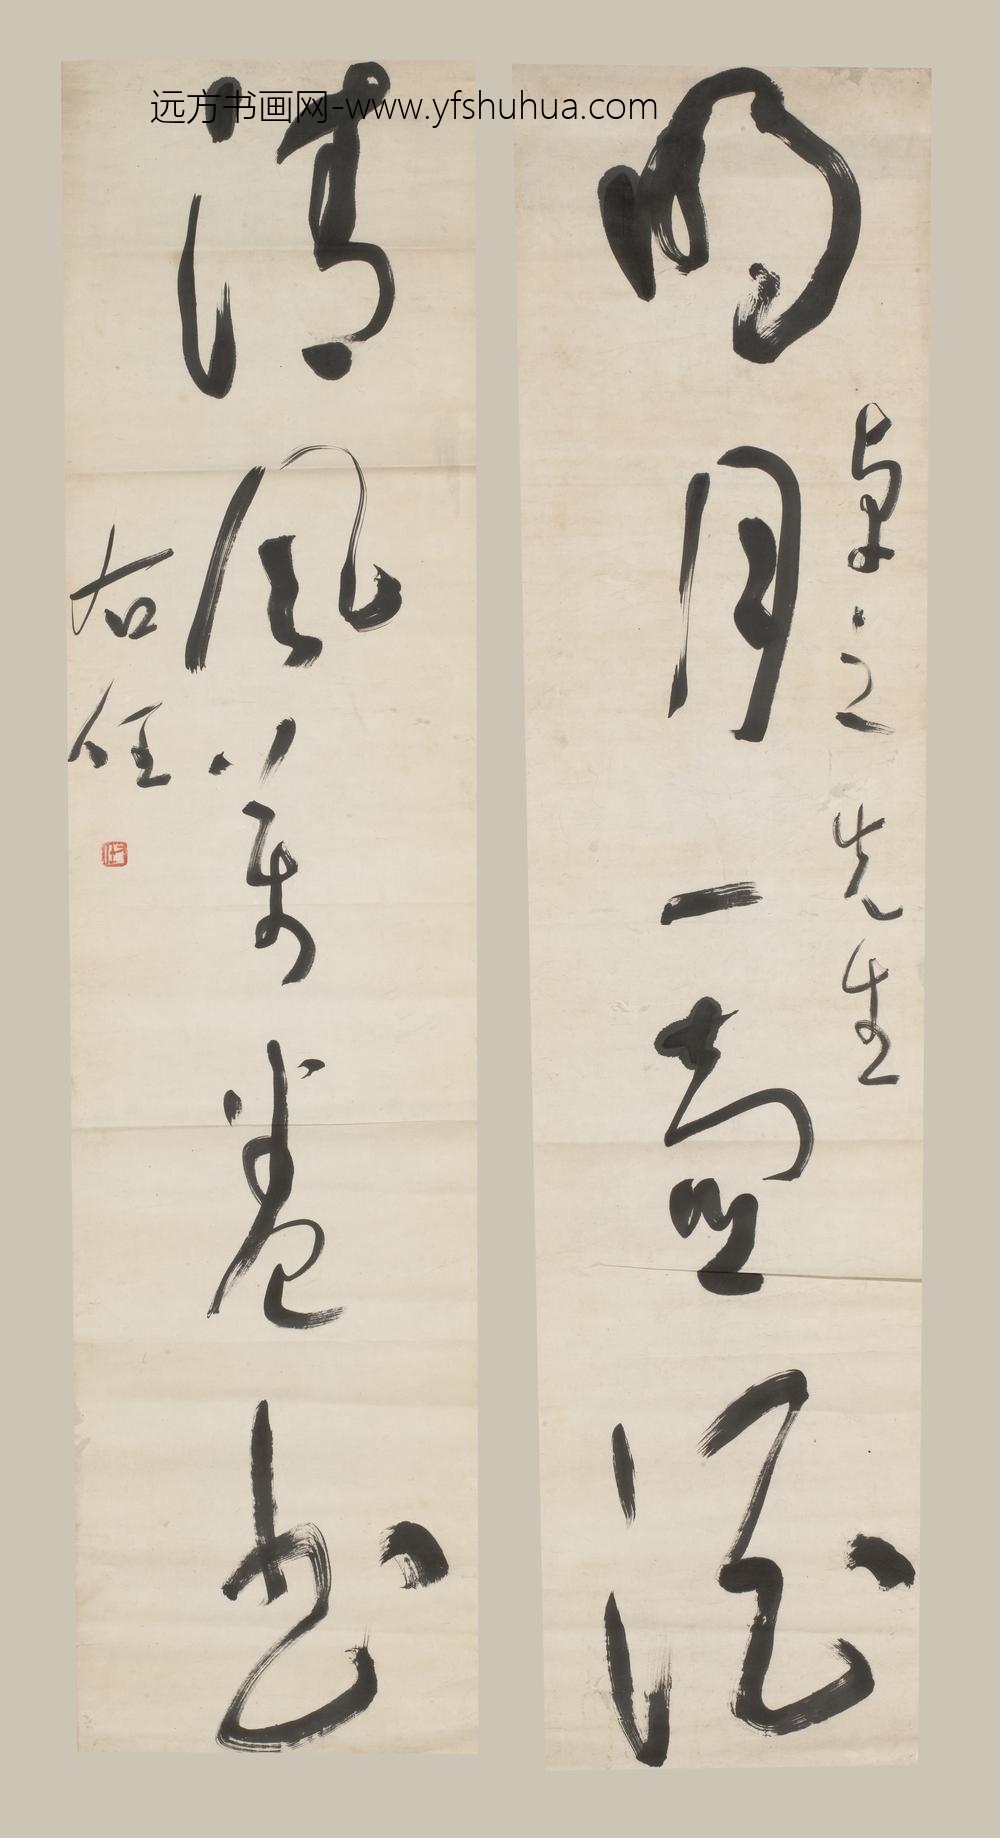 远方书画网-www.yfshuhua.com
明月一壶酒
卓之先生
清风万卷书
右任